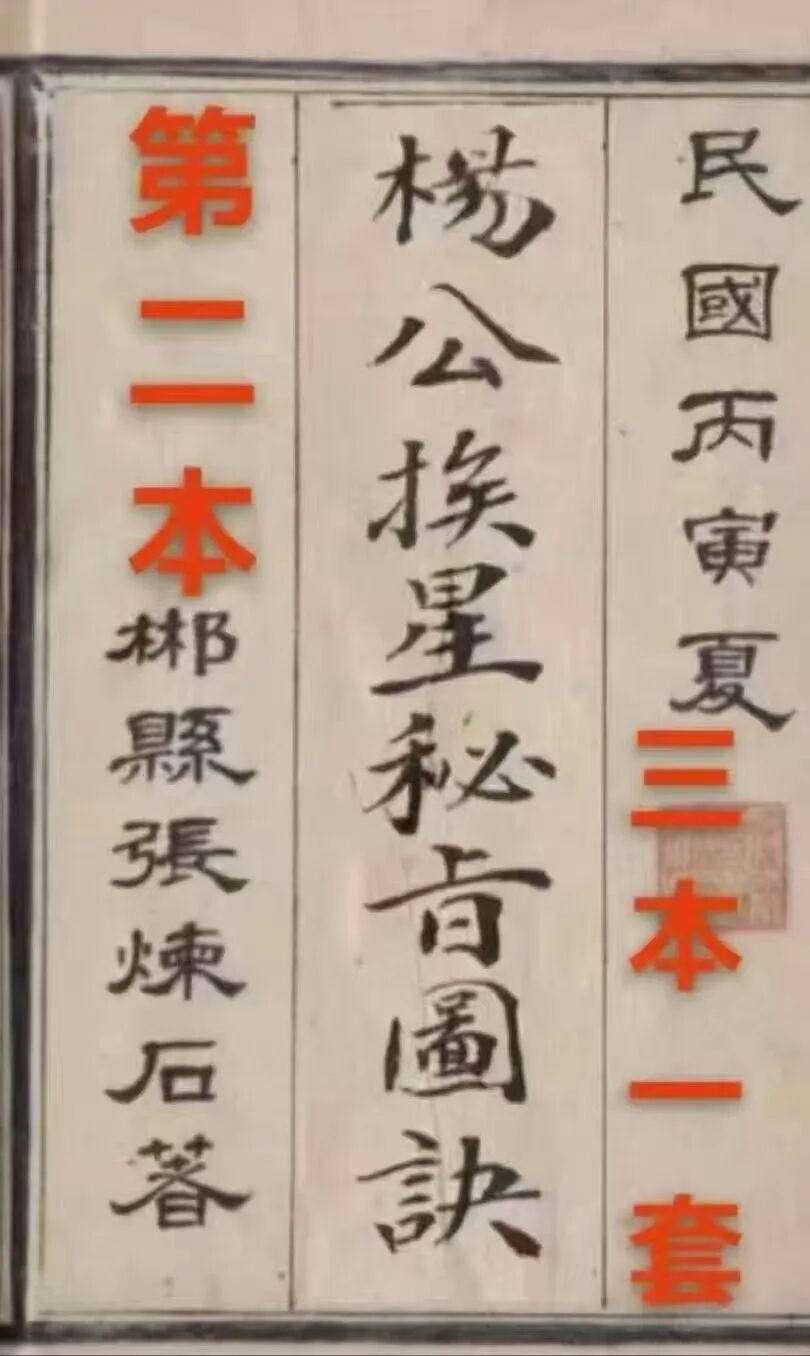 民國丙寅夏
三本一套
楊公挨星秘旨圖訣
第二本
郴縣張煉石著